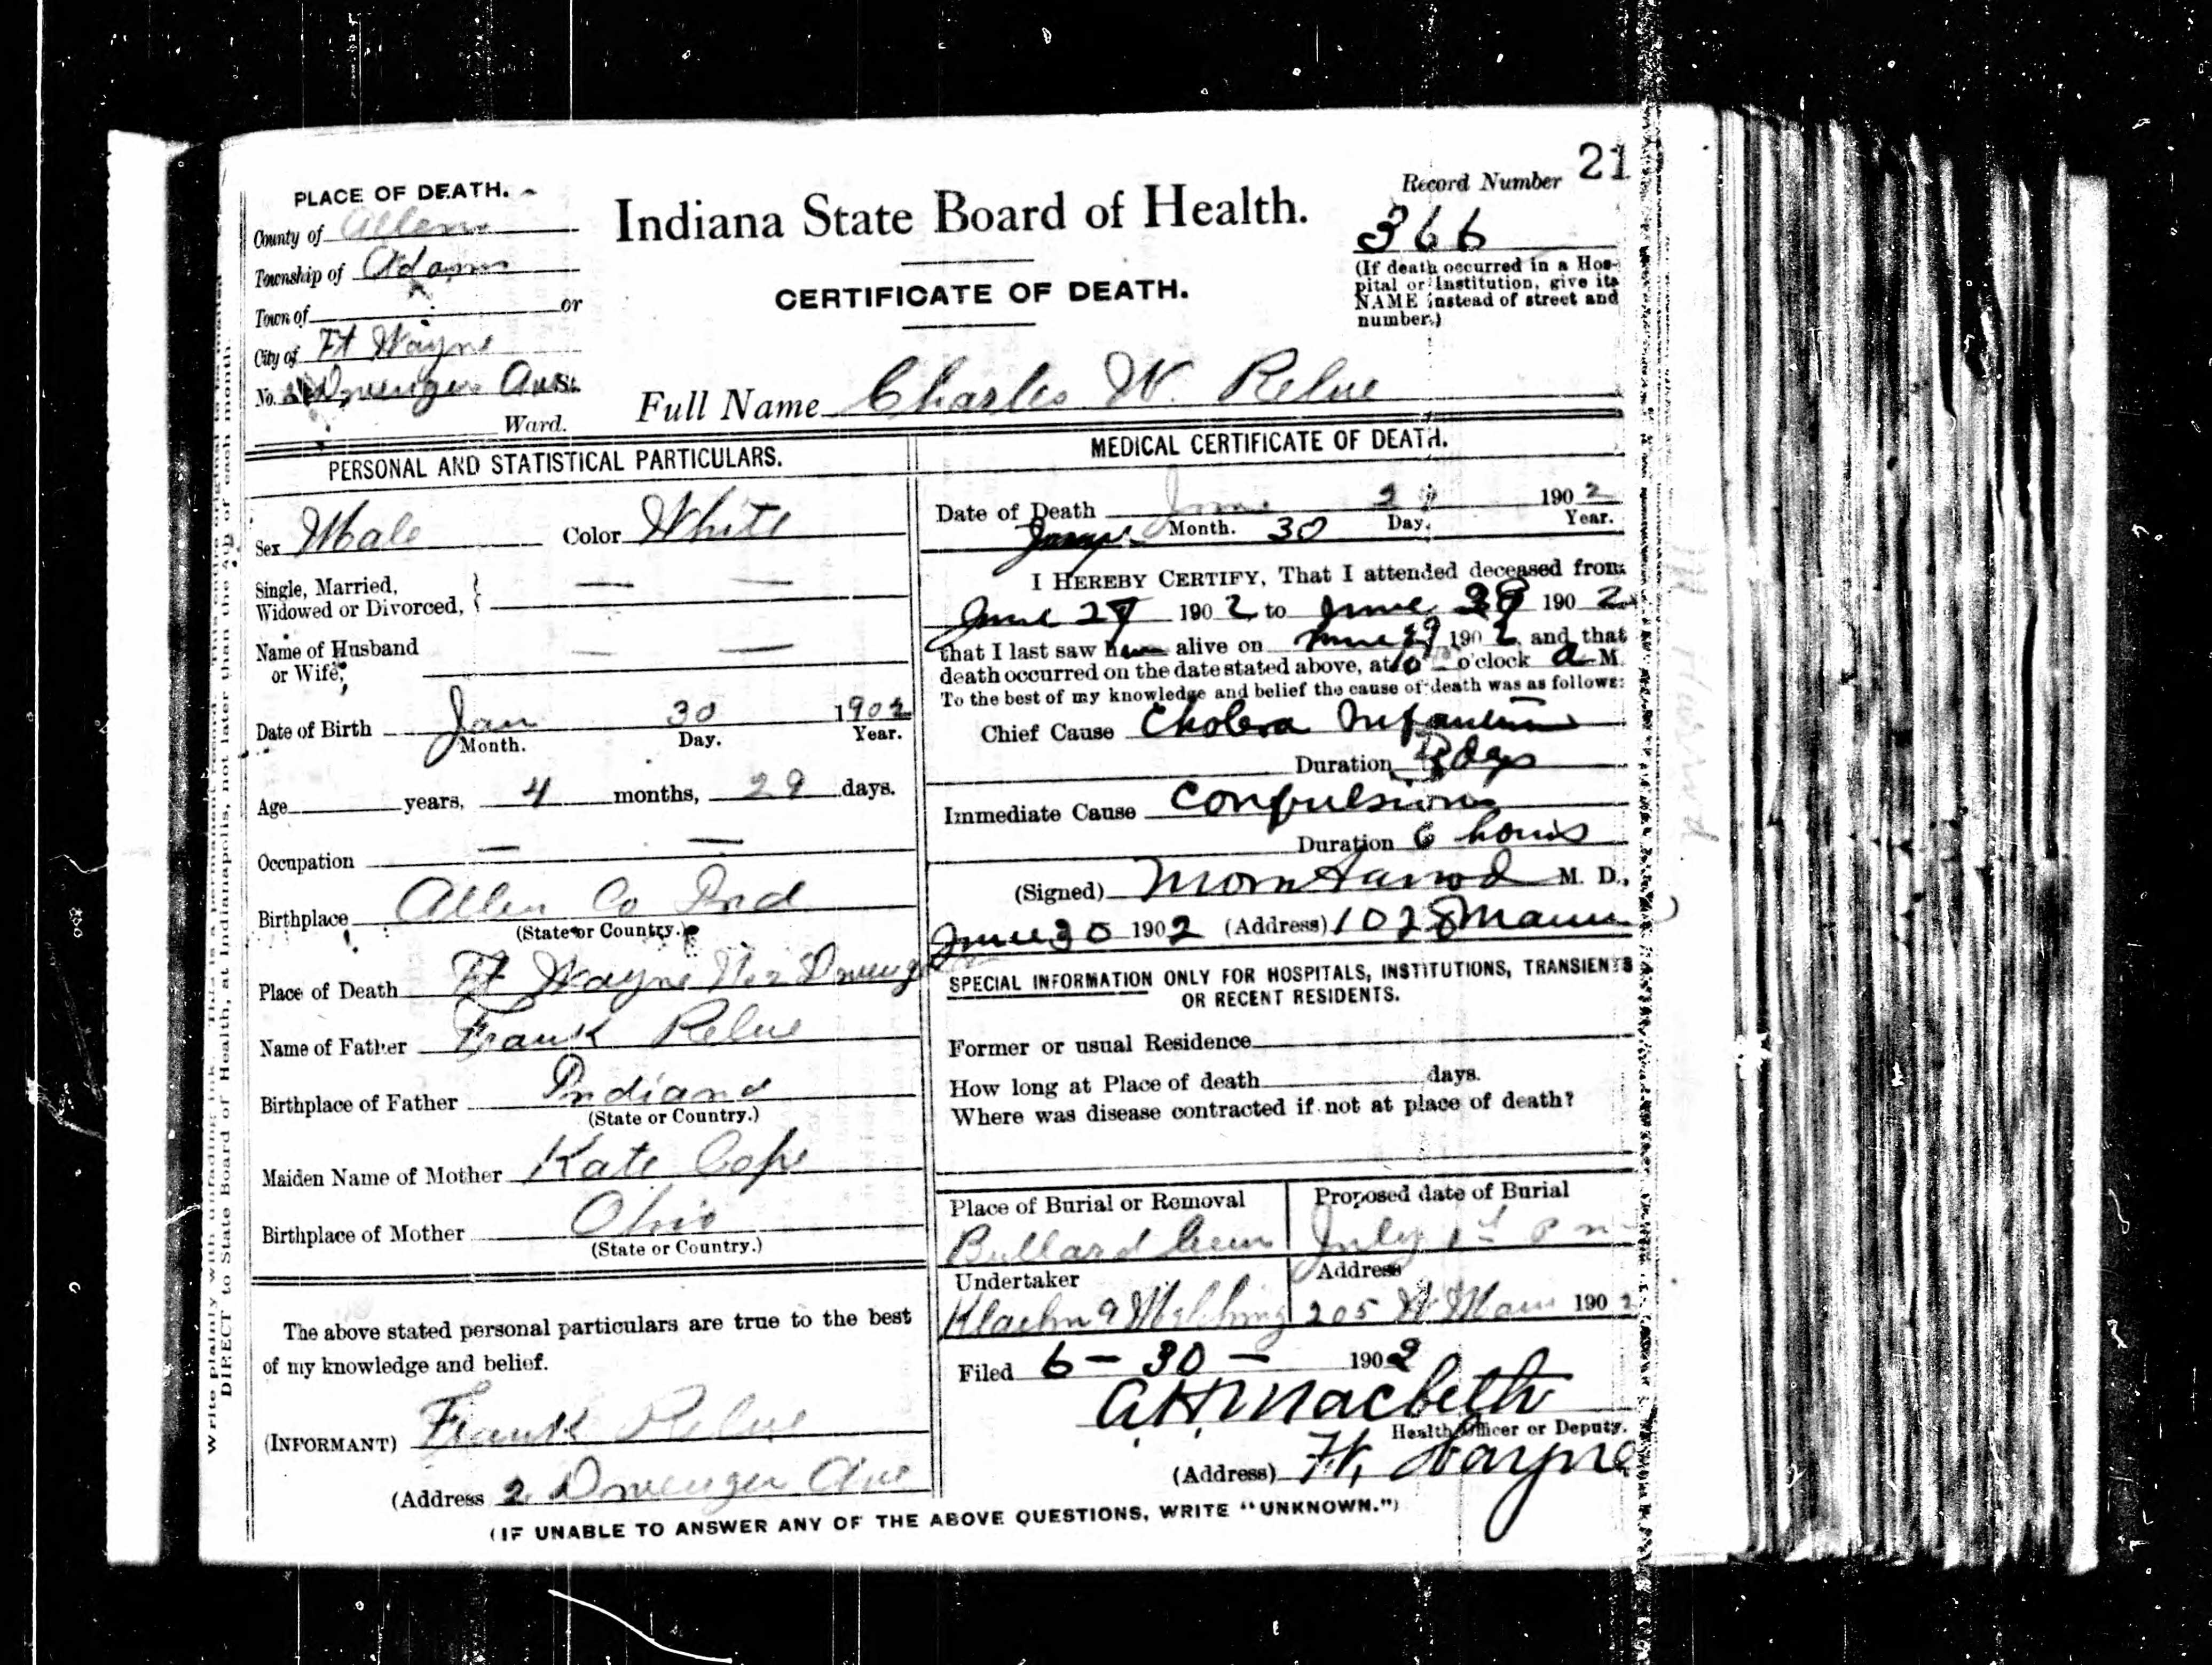 21
PLACE OF DEATH.
County of Allen
Township of Adams
Town of or
City of Ft Wayne
No. 2 Dwenger Ave St.
Ward.
Indiana State Board of Health.
CERTIFICATE OF DEATH.
Record Number
366
(If death occurred in a Hos-
pital or Institution, give its
NAME instead of street and
number.)
Full Name Charles W. Relue
PERSONAL AND STATISTICAL PARTICULARS.
Sex Male Color White
Single, Married,
Widowed or Divorced,
Name of Husband
or Wife,
Date of Birth Jan 30 1902
Month. Day. Year.
Age years, 4 months, 29 days.
Occupation
Birthplace Allen Co Ind
(State or Country.)
Place of Death Ft Wayne No 2 Dwenger
Name of Father Frank Relue
Birthplace of Father Indiana
(State or Country.)
Maiden Name of Mother Kate Cope
Birthplace of Mother Ohio
(State or Country.)
The above stated personal particulars are true to the best
of my knowledge and belief.
(INFORMANT) Frank Relue
(Address 2 Dwenger Ave
MEDICAL CERTIFICATE OF DEATH.
Date of Death June 1902
Month. 30 Day. Year.
I HEREBY CERTIFY, That I attended deceased from
June 1902 to June 1902
that I last saw him alive on June 29 1902 and that
death occurred on the date stated above, at 10 o'clock A M.
To the best of my knowledge and belief the cause of death was as follows:
Chief Cause Cholera Infantum
Duration days
Immediate Cause Convulsions
Duration 6 hours
(Signed) M. D.,
June 30 1902 (Address) 1028
SPECIAL INFORMATION ONLY FOR HOSPITALS, INSTITUTIONS, TRANSIENTS
OR RECENT RESIDENTS.
Former or usual Residence
How long at Place of death days.
Where was disease contracted if not at place of death?
Place of Burial or Removal
Bullard Cem
Proposed date of Burial
July 1st
Undertaker
Klaehn & Melching
Address
205 W Main 1902
Filed 6-30- 1902
A H Macbeth
Health Officer or Deputy.
(Address) Ft, Wayne
(IF UNABLE TO ANSWER ANY OF THE ABOVE QUESTIONS, WRITE "UNKNOWN.")
Write plainly with unfading ink. This is a permanent record.
DIRECT to State Board of Health, at Indianapolis, not later than the 4th of each month.